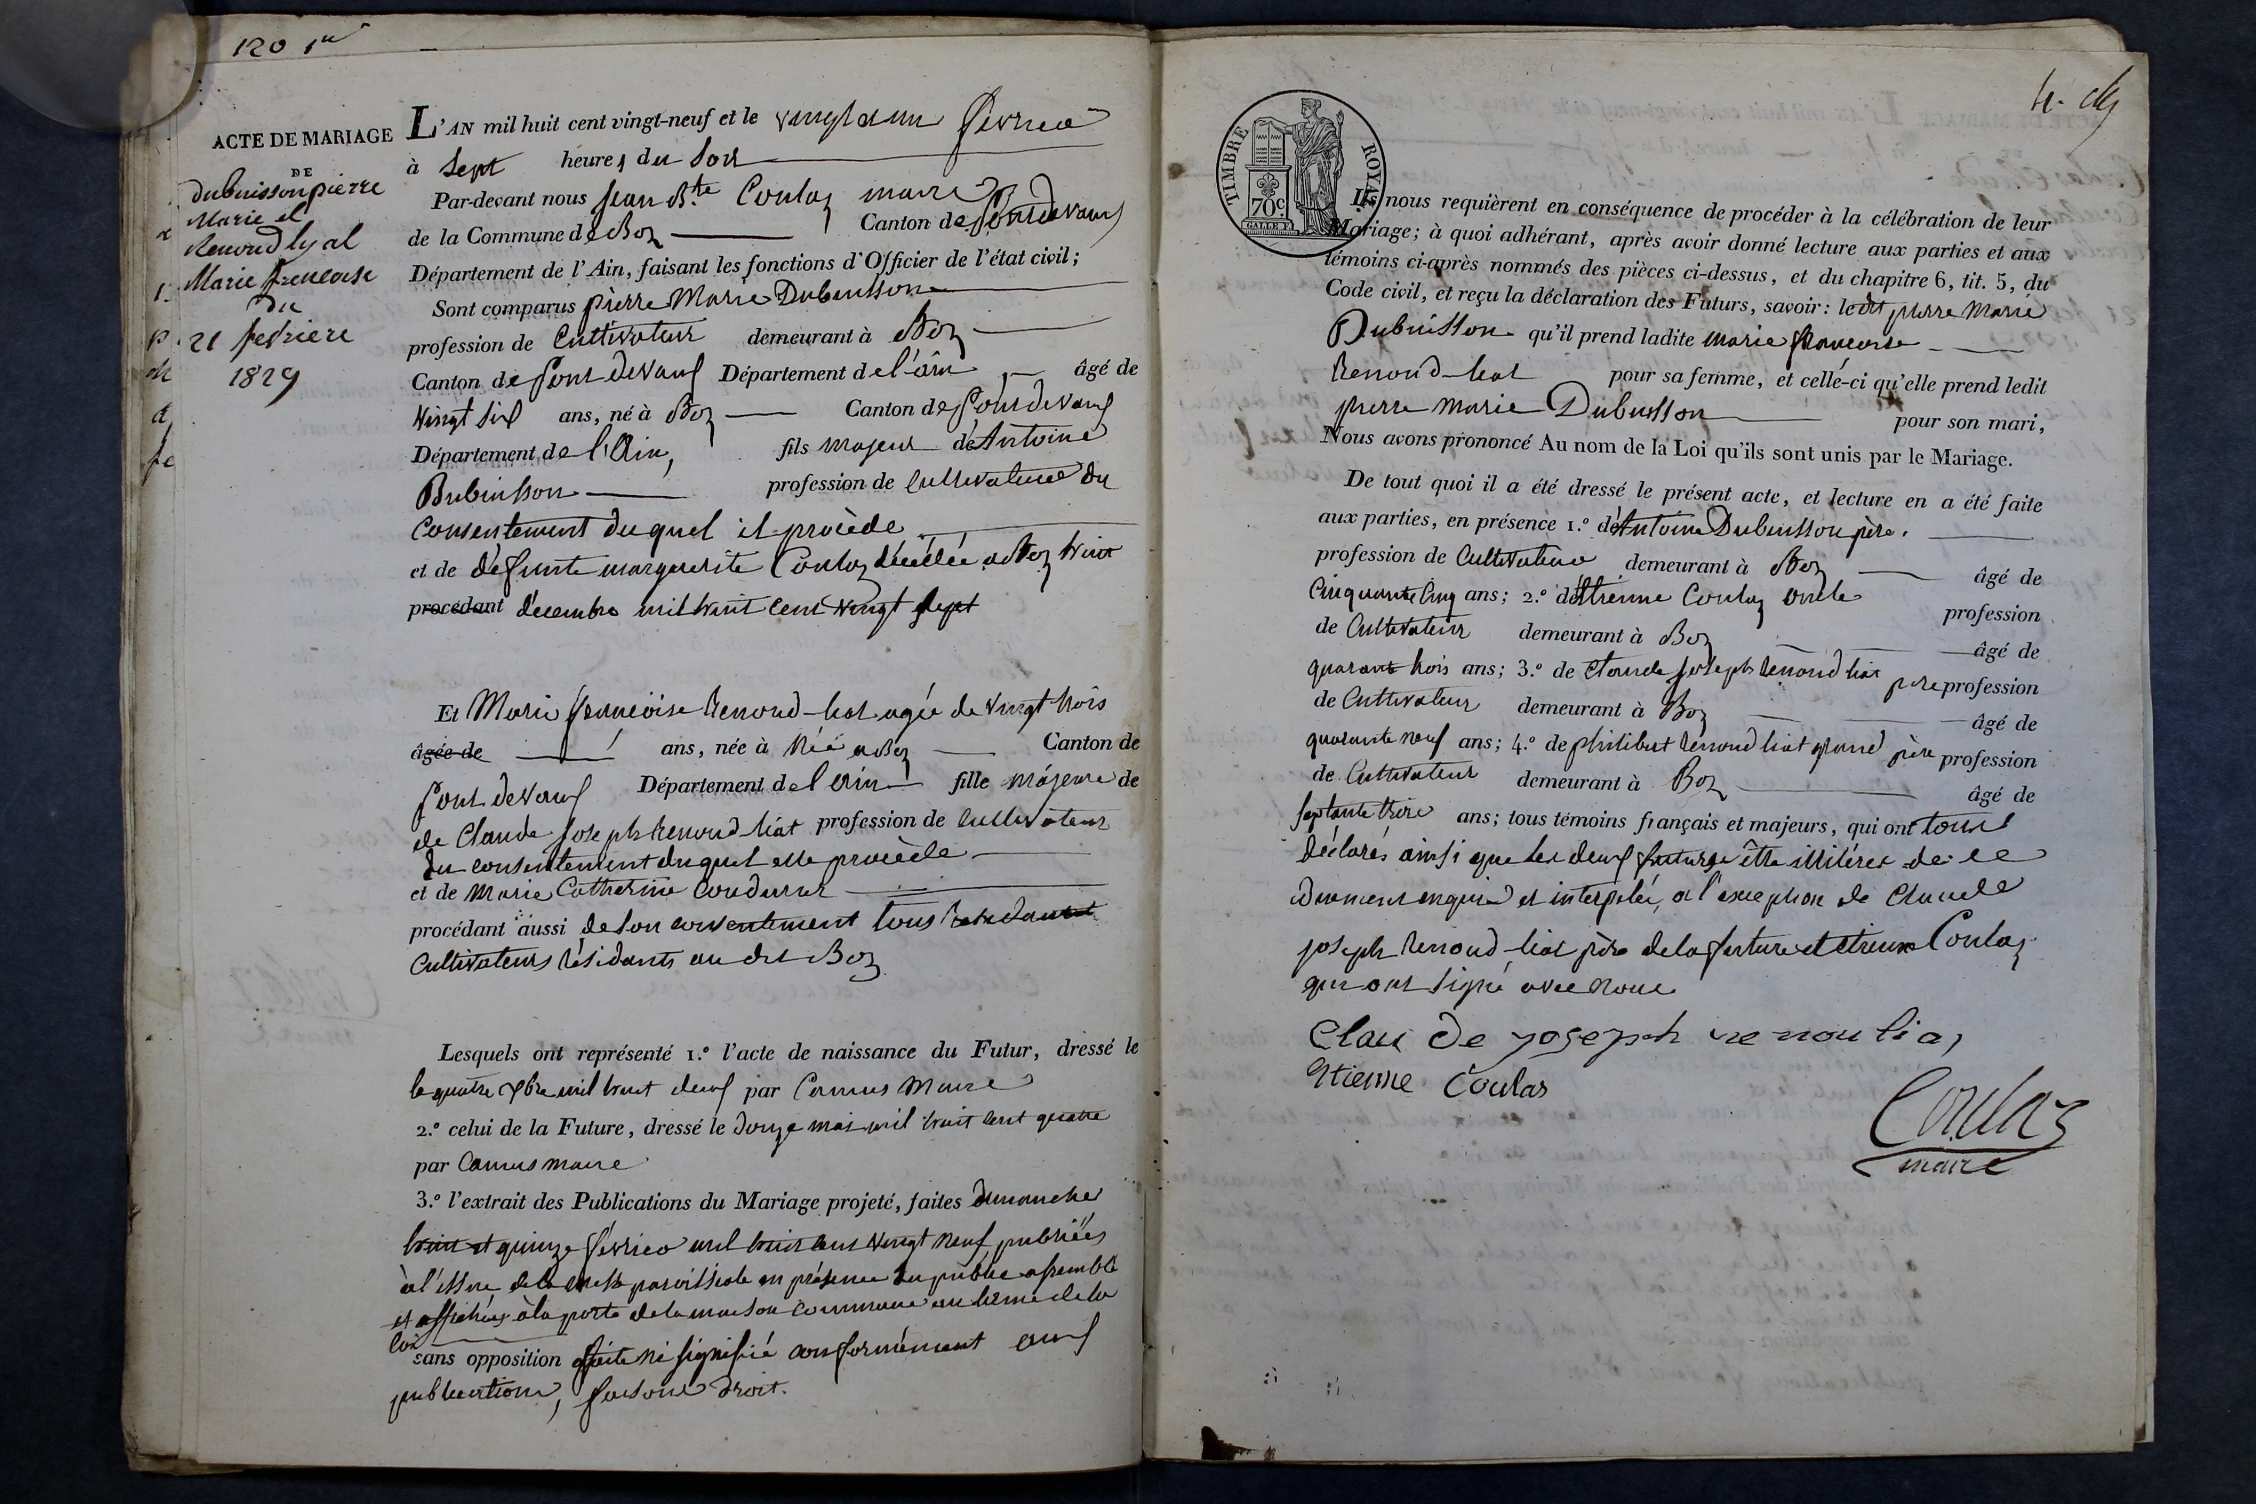 120 1er
ACTE DE MARIAGE
DE
Dubuisson pierre
Marie et
Renoud lyal
Marie francoise
Du
21 fevriere
1829
L'AN mil huit cent vingt-neuf et le vingt et un fevrier
à sept heures du soir
Par-devant nous Jean Bte Coulas maire
de la Commune de Boz Canton de Pont de vaux
Département de l'Ain, faisant les fonctions d'Officier de l'état civil;
Sont comparus pierre Marie Dubuisson
profession de Cultivateur demeurant à Boz
Canton de Pont de Vaux Département de l'ain âgé de
vingt six ans, né à Boz Canton de Pont de Vaux
Département de l'Ain, fils majeur de Antoine
Dubuisson profession de cultivateur du
consentement du quel il procède
et de défunte marguerite Coulaz décédée a Boz huit
procédant décembre mil huit cent vingt sept
Et Marie françoise Renoud-liat agée de vingt trois
âgée de ans, née à Née a Boz Canton de
Pont de Vaux Département de l'ain fille majeure de
de Claude Joseph Renoud liat profession de cultivateur
du consentement duquel elle procède
et de Marie Catherine
procédant aussi de son consentement tous
Cultivateurs résidants au dit Boz
Lesquels ont représenté 1.º l'acte de naissance du Futur, dressé le
le quatre mil huit deux par Camus Maire
2.º celui de la Future, dressé le douze mai mil huit cent quatre
par Camus maire
3.º l'extrait des Publications du Mariage projeté, faites dimanche
huit et quinze fevrier mil huit cent vingt neuf publiées
à l'issue de la messe paroissiale en présence du public assemblé
et affichées à la porte de la maison commune au terme de la
loi
sans opposition faite ni signifié conformément aux
publications, faisons droit.
TIMBRE ROYAL
70c
Ils nous requièrent en conséquence de procéder à la célébration de leur
Mariage; à quoi adhérant, après avoir donné lecture aux parties et aux
témoins ci-après nommés des pièces ci-dessus, et du chapitre 6, tit. 5, du
Code civil, et reçu la déclaration des Futurs, savoir: ledit pierre Marie
Dubuisson qu'il prend ladite marie françoise
Renoud-liat pour sa femme, et celle-ci qu'elle prend ledit
pierre marie Dubuisson pour son mari,
Nous avons prononcé Au nom de la Loi qu'ils sont unis par le Mariage.
De tout quoi il a été dressé le présent acte, et lecture en a été faite
aux parties, en présence 1.º de Antoine Dubuisson père,
profession de Cultivateur demeurant à Boz âgé de
Cinquante Cinq ans; 2.º de Etienne Coulaz oncle profession
de Cultivateur demeurant à Boz âgé de
quarante trois ans; 3.º de Claude Joseph Renoud liat père profession
de Cultivateur demeurant à Boz âgé de
quarante neuf ans; 4.º de philibert Renoud liat grand père profession
de Cultivateur demeurant à Boz âgé de
septante treize ans; tous témoins français et majeurs, qui ont tous
déclarés ainsi que les deux futurs être illitéres de ce
dûment enquis et interpelés, a l'exception de Claude
joseph Renoud-liat père de la future et etienne Coulaz
qui ont signé avec nous
Clau de yoseph renoulia,
Etienne Coulas
Coulaz
maire